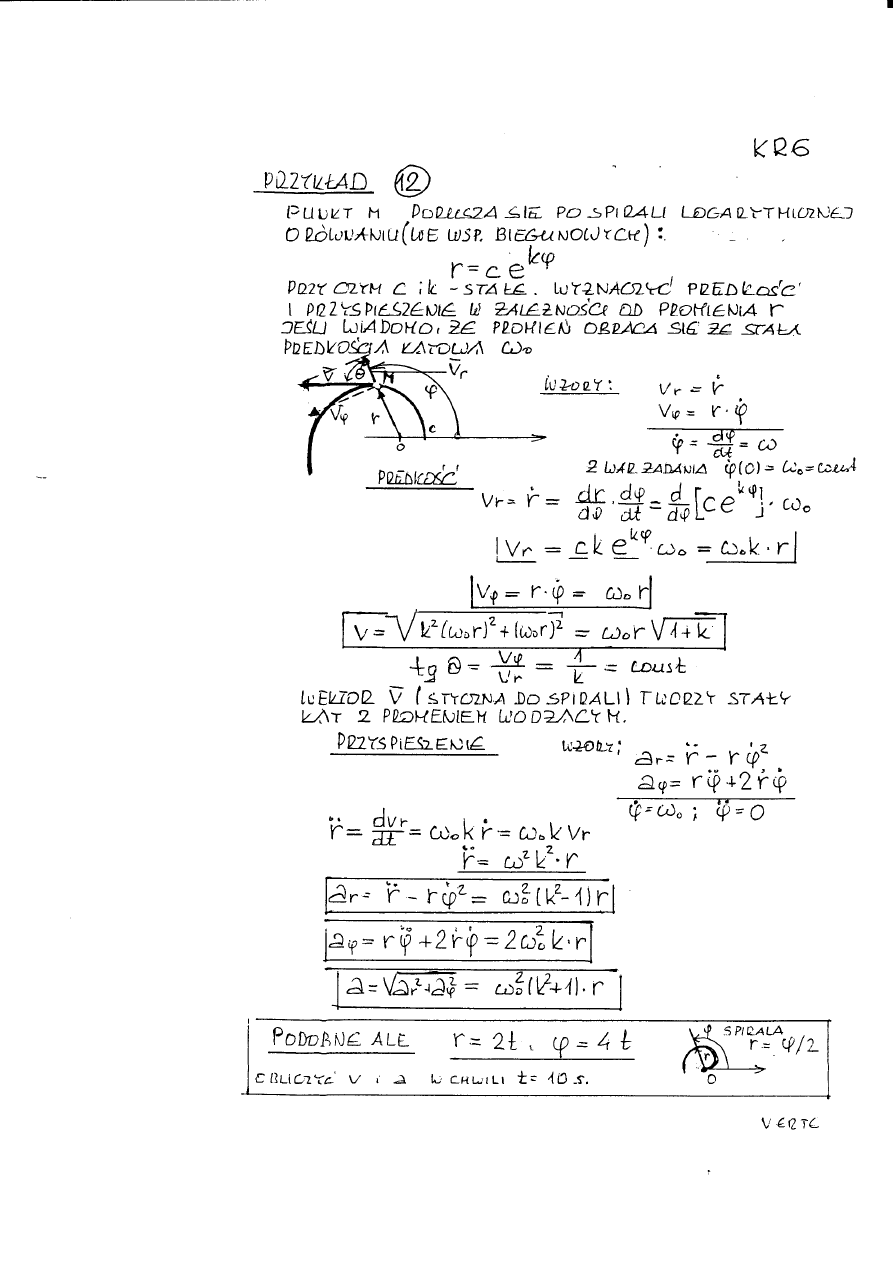 KR6
PRZYKŁAD 12
PUNKT M PORUSZA SIE PO SPIRALI LOGARYTMICZNEJ
O RÓWNANIU (WE WSP. BIEGUNOWYCH):
r = c e^{kφ}
PRZY CZYM C i k - STAŁE. WYZNACZYĆ PREDKOŚĆ
I PRZYSPIESZENIE W ZALEŻNOŚCI OD PROMIENIA r
JEŚLI WIADOMO, ŻE PROMIEŃ OBRACA SIE ZE STAŁA
PREDKOŚCIA KATOWA ω₀
V̄ θ M V̄r φ V̄φ r c O
WZORY: Vr = ṙ
Vφ = r·φ̇
φ̇ = dφ/dt = ω
Z WAR. ZADANIA φ̇(0) = ω₀ = const
PREDKOŚĆ
Vr = ṙ = dr/dφ · dφ/dt = d/dφ [c e^{kφ}] · ω₀
Vr = c k e^{kφ} · ω₀ = ω₀k · r
Vφ = r·φ̇ = ω₀ r
V = √(k²(ω₀r)² + (ω₀r)²) = ω₀ r √(1+k)
tg θ = Vφ/Vr = 1/k = const
WEKTOR V̄ (STYCZNA DO SPIRALI) TWORZY STAŁY
KAT Z PROMENIEM WODZACYM.
PRZYSPIESZENIE WZORY; ar = r̈ - r φ̇²
aφ = r φ̈ + 2 ṙ φ̇
φ̇ = ω₀ ; φ̈ = 0
r̈ = dvr/dt = ω₀k ṙ = ω₀k Vr
r̈ = ω² k² · r
ar = r̈ - r φ̇² = ω₀² (k² - 1) r
aφ = r φ̈ + 2 ṙ φ̇ = 2ω₀² k · r
a = √(ar² + aφ²) = ω₀² (k² + 1) · r
PODOBNE ALE r = 2t, φ = 4t
φ SPIRALA
r = φ/2
r
O
OBLICZYĆ V i a W CHWILI t = 10 s.
VERTE